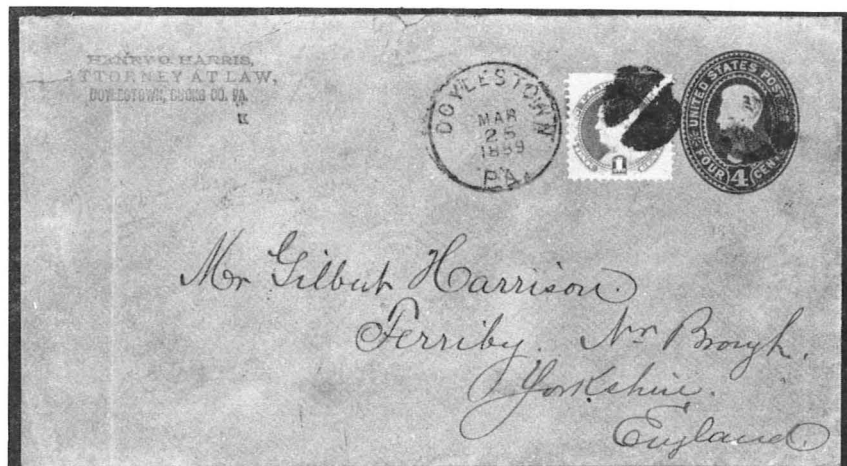 HENRY O. HARRIS,
ATTORNEY AT LAW,
DOYLESTOWN, BUCKS CO. PA.
DOYLESTOWN
MAR
25
1889
PA.
1
UNITED STATES POSTAGE
FOUR 4 CENTS
Mr Gilbert Harrison.
Ferriby. Nr Brough.
Yorkshire.
England.